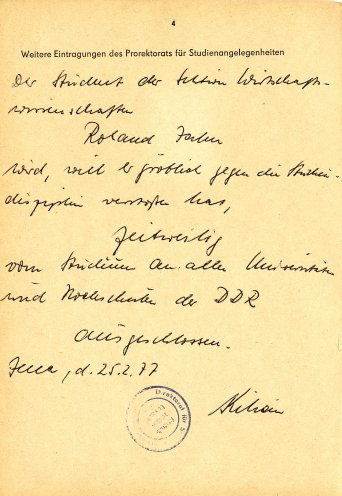 4
Weitere Eintragungen des Prorektorats für Studienangelegenheiten
Der Student der Sektion Wirtschafts-
wissenschaften
Roland Jahn
wird, weil er gröblich gegen die Studien-
disziplin verstoßen hat,
zeitweilig
vom Studium an allen Universitäten
und Hochschulen der DDR
ausgeschlossen.
Jena, d. 25.2.77
Kilian
Direktorat für S